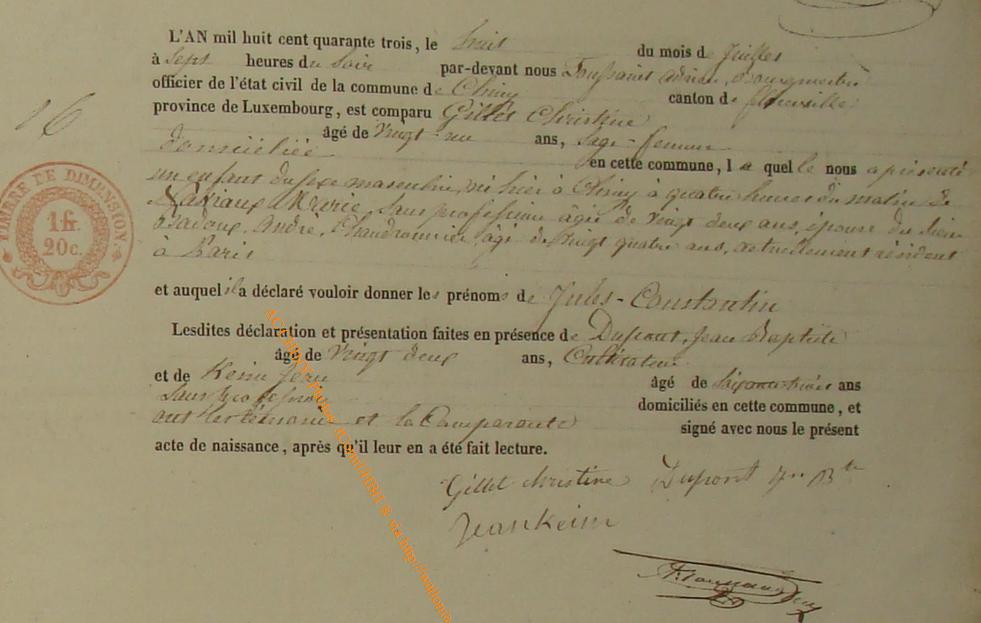 L'AN mil huit cent quarante trois, le huit du mois de Juillet
à Sept heures du Soir par-devant nous Toussaint Adrien, Bourgmestre
officier de l'état civil de la commune de Chiny canton de florenville
province de Luxembourg, est comparu Gillet Christine
16
âgé de vingt-un ans, Sage-femme
domiciliée en cette commune, l a quel le nous a présenté
un enfant du sexe masculin, né hier à Chiny a quatre heures du matin de
Marie, sans profession âgée de vingt deux ans, épouse du sieur
André, Chaudronnier, âgé de vingt quatre ans, actuellement résident
à Paris
TIMBRE DE DIMENSION
1 fr.
20 c.
et auquel il a déclaré vouloir donner les prénoms de Jules-Constantin
Lesdites déclaration et présentation faites en présence de Dupont, Jean Baptiste
âgé de vingt deux ans, Cultivateur
et de Keim Jean âgé de soixante trois ans
Sans profession domiciliés en cette commune, et
ont les témoins et la Comparante signé avec nous le présent
acte de naissance, après qu'il leur en a été fait lecture.
Gillet Christine Dupont Jn Bte
Jean Keim